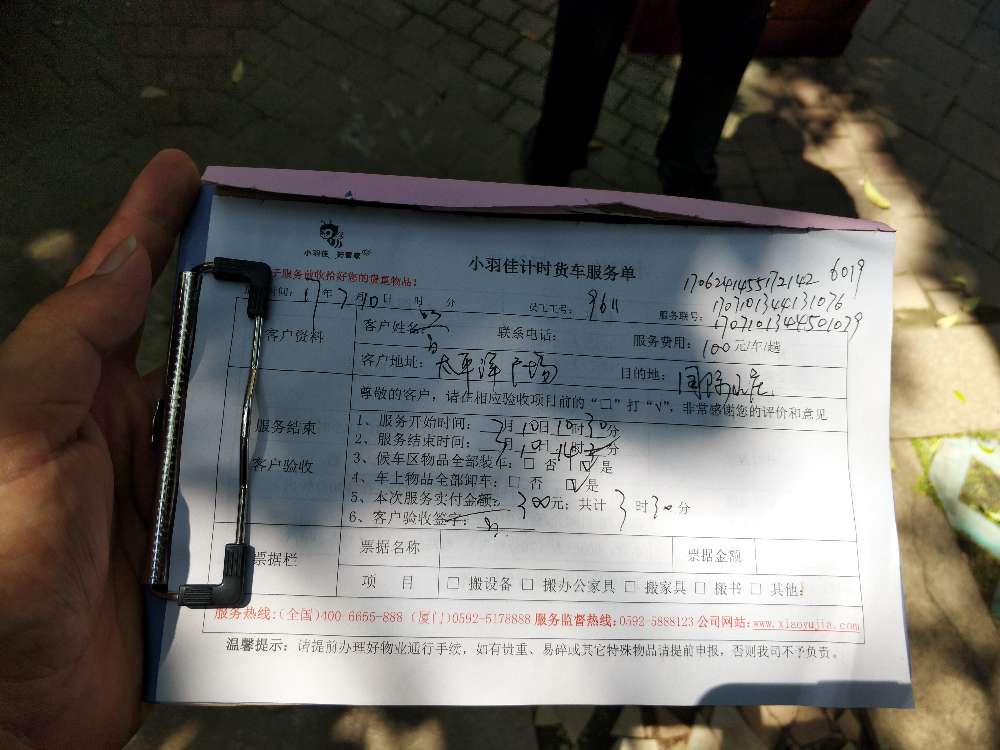 小羽佳 好管家
小羽佳计时货车服务单
服务前敬收拾好您的贵重物品:
1706241455172142 6019
时间: 17年7月10日 时 分
员工工号: 9611
服务联号: 1707101344131076
1707101344501079
客户资料
客户姓名
联系电话:
服务费用: 100元/车/趟
客户地址: 太平洋广场
目的地: 国际山庄
尊敬的客户,请在相应验收项目前的“□”打“√”,非常感谢您的评价和意见
服务结束
客户验收
1、服务开始时间: 7月10日10时30分
2、服务结束时间: 7月10日14时 分
3、候车区物品全部装车: □ 否 ☑ 是
4、车上物品全部卸车: □ 否 ☑ 是
5、本次服务实付金额: 300元; 共计 3 时30分
6、客户验收签字:
票据栏
票据名称
票据金额
项 目
□ 搬设备 □ 搬办公家具 □ 搬家具 □ 搬书 □ 其他:
服务热线:(全国)400-6655-888 (厦门)0592-5178888 服务监督热线:0592-5888123 公司网站:www.xiaoyujia.com
温馨提示: 请提前办理好物业通行手续,如有贵重、易碎或其它特殊物品请提前申报,否则我司不予负责。